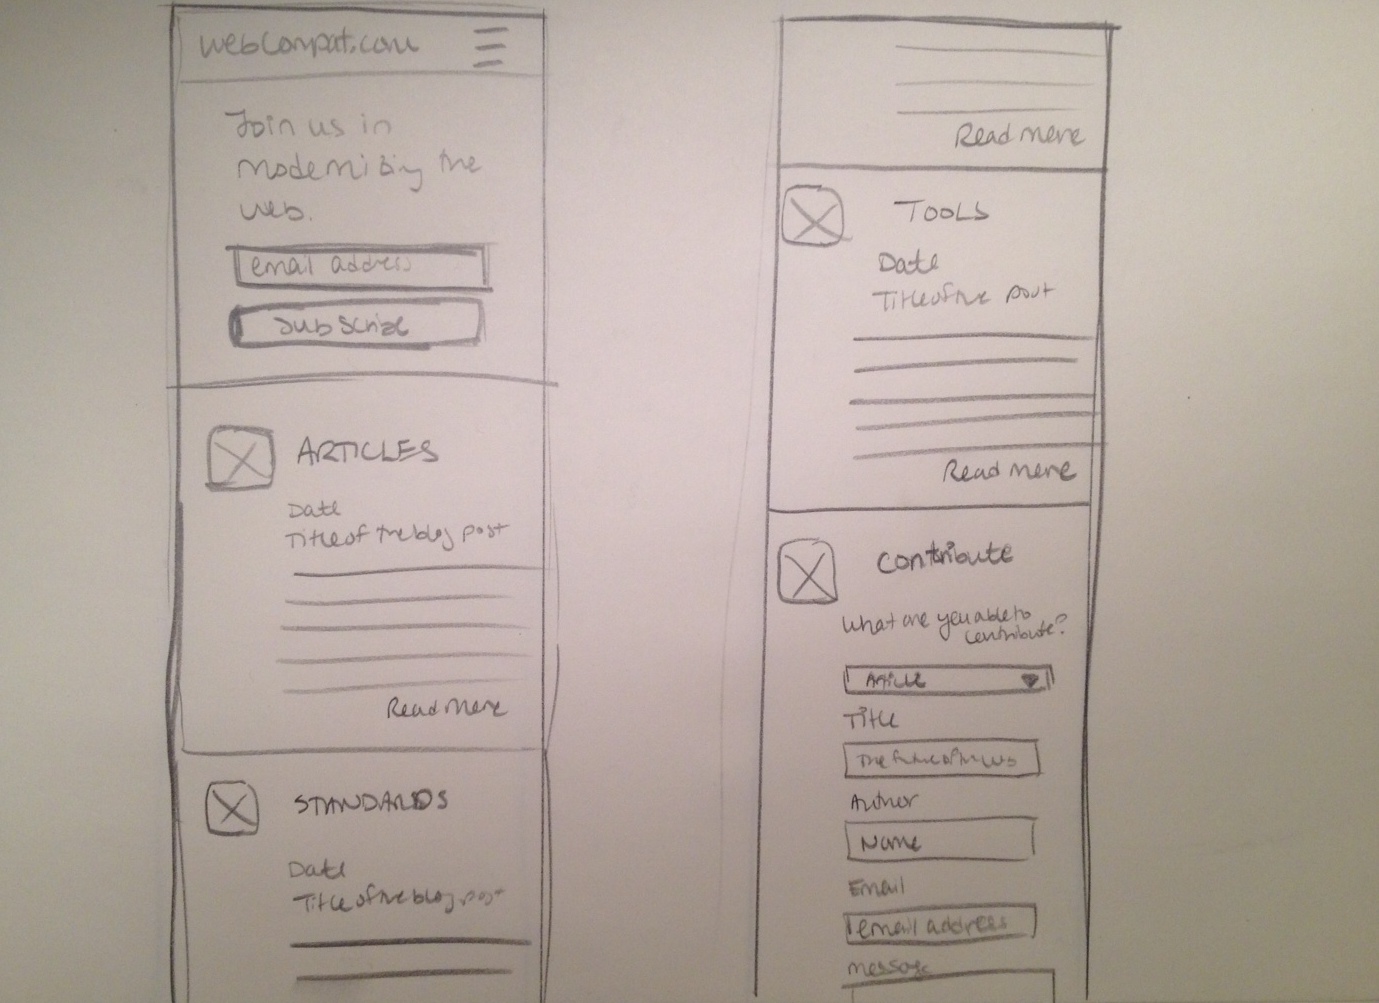 webcompat.com
Join us in
modernizing the
web.
email address
Subscribe
ARTICLES
Date
Title of the blog post
Read more
STANDARDS
Date
Title of the blog post
Read more
TOOLS
Date
Title of the post
Read more
Contribute
What are you able to
contribute?
Article
Title
The future of the web
Author
Name
Email
email address
message